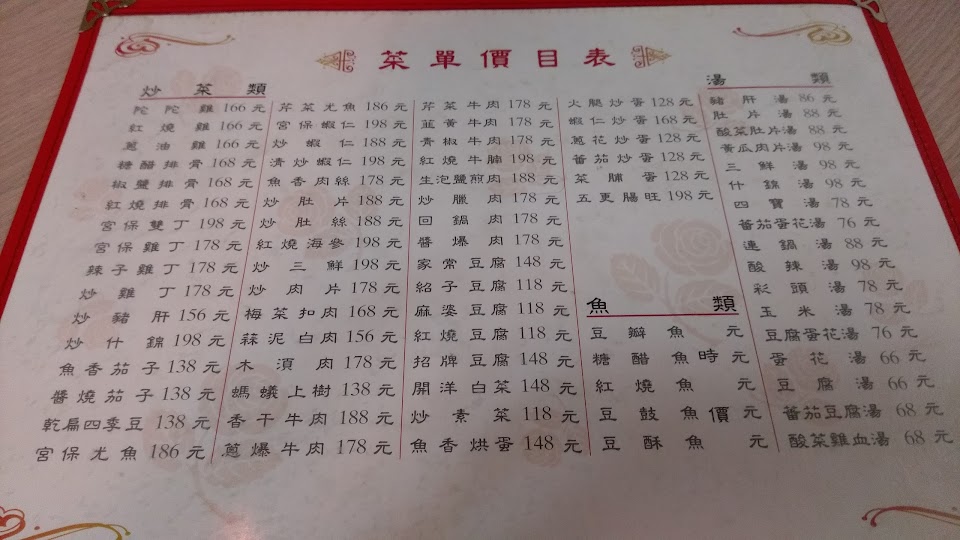 菜單價目表
炒菜類
陀陀雞 166 元
紅燒雞 166 元
蔥油雞 166 元
糖醋排骨 168 元
椒鹽排骨 168 元
紅燒排骨 168 元
宮保雙丁 198 元
宮保雞丁 178 元
辣子雞丁 178 元
炒雞丁 178 元
炒豬肝 156 元
炒什錦 198 元
魚香茄子 138 元
醬燒茄子 138 元
乾扁四季豆 138 元
宮保尤魚 186 元
芹菜尤魚 186 元
宮保蝦仁 198 元
炒蝦仁 188 元
清炒蝦仁 198 元
魚香肉絲 178 元
炒肚片 188 元
炒肚絲 188 元
紅燒海參 198 元
炒三鮮 198 元
炒肉片 178 元
梅菜扣肉 168 元
蒜泥白肉 156 元
木須肉 178 元
螞蟻上樹 138 元
香干牛肉 188 元
蔥爆牛肉 178 元
芹菜牛肉 178 元
韮黃牛肉 178 元
青椒牛肉 178 元
紅燒牛腩 198 元
生泡鹽煎肉 188 元
炒臘肉 178 元
回鍋肉 178 元
醬爆肉 178 元
家常豆腐 148 元
紹子豆腐 118 元
麻婆豆腐 118 元
紅燒豆腐 118 元
招牌豆腐 148 元
開洋白菜 148 元
炒素菜 118 元
魚香烘蛋 148 元
火腿炒蛋 128 元
蝦仁炒蛋 168 元
蔥花炒蛋 128 元
番茄炒蛋 128 元
菜脯蛋 128 元
五更腸旺 198 元
魚類
豆瓣魚 元
糖醋魚時 元
紅燒魚 元
豆鼓魚價 元
豆酥魚 元
湯類
豬肝湯 86 元
肚片湯 88 元
酸菜肚片湯 88 元
黃瓜肉片湯 98 元
三鮮湯 98 元
什錦湯 98 元
四寶湯 78 元
番茄蛋花湯 76 元
連鍋湯 88 元
酸辣湯 98 元
彩頭湯 78 元
玉米湯 78 元
豆腐蛋花湯 76 元
蛋花湯 66 元
豆腐湯 66 元
番茄豆腐湯 68 元
酸菜雞血湯 68 元